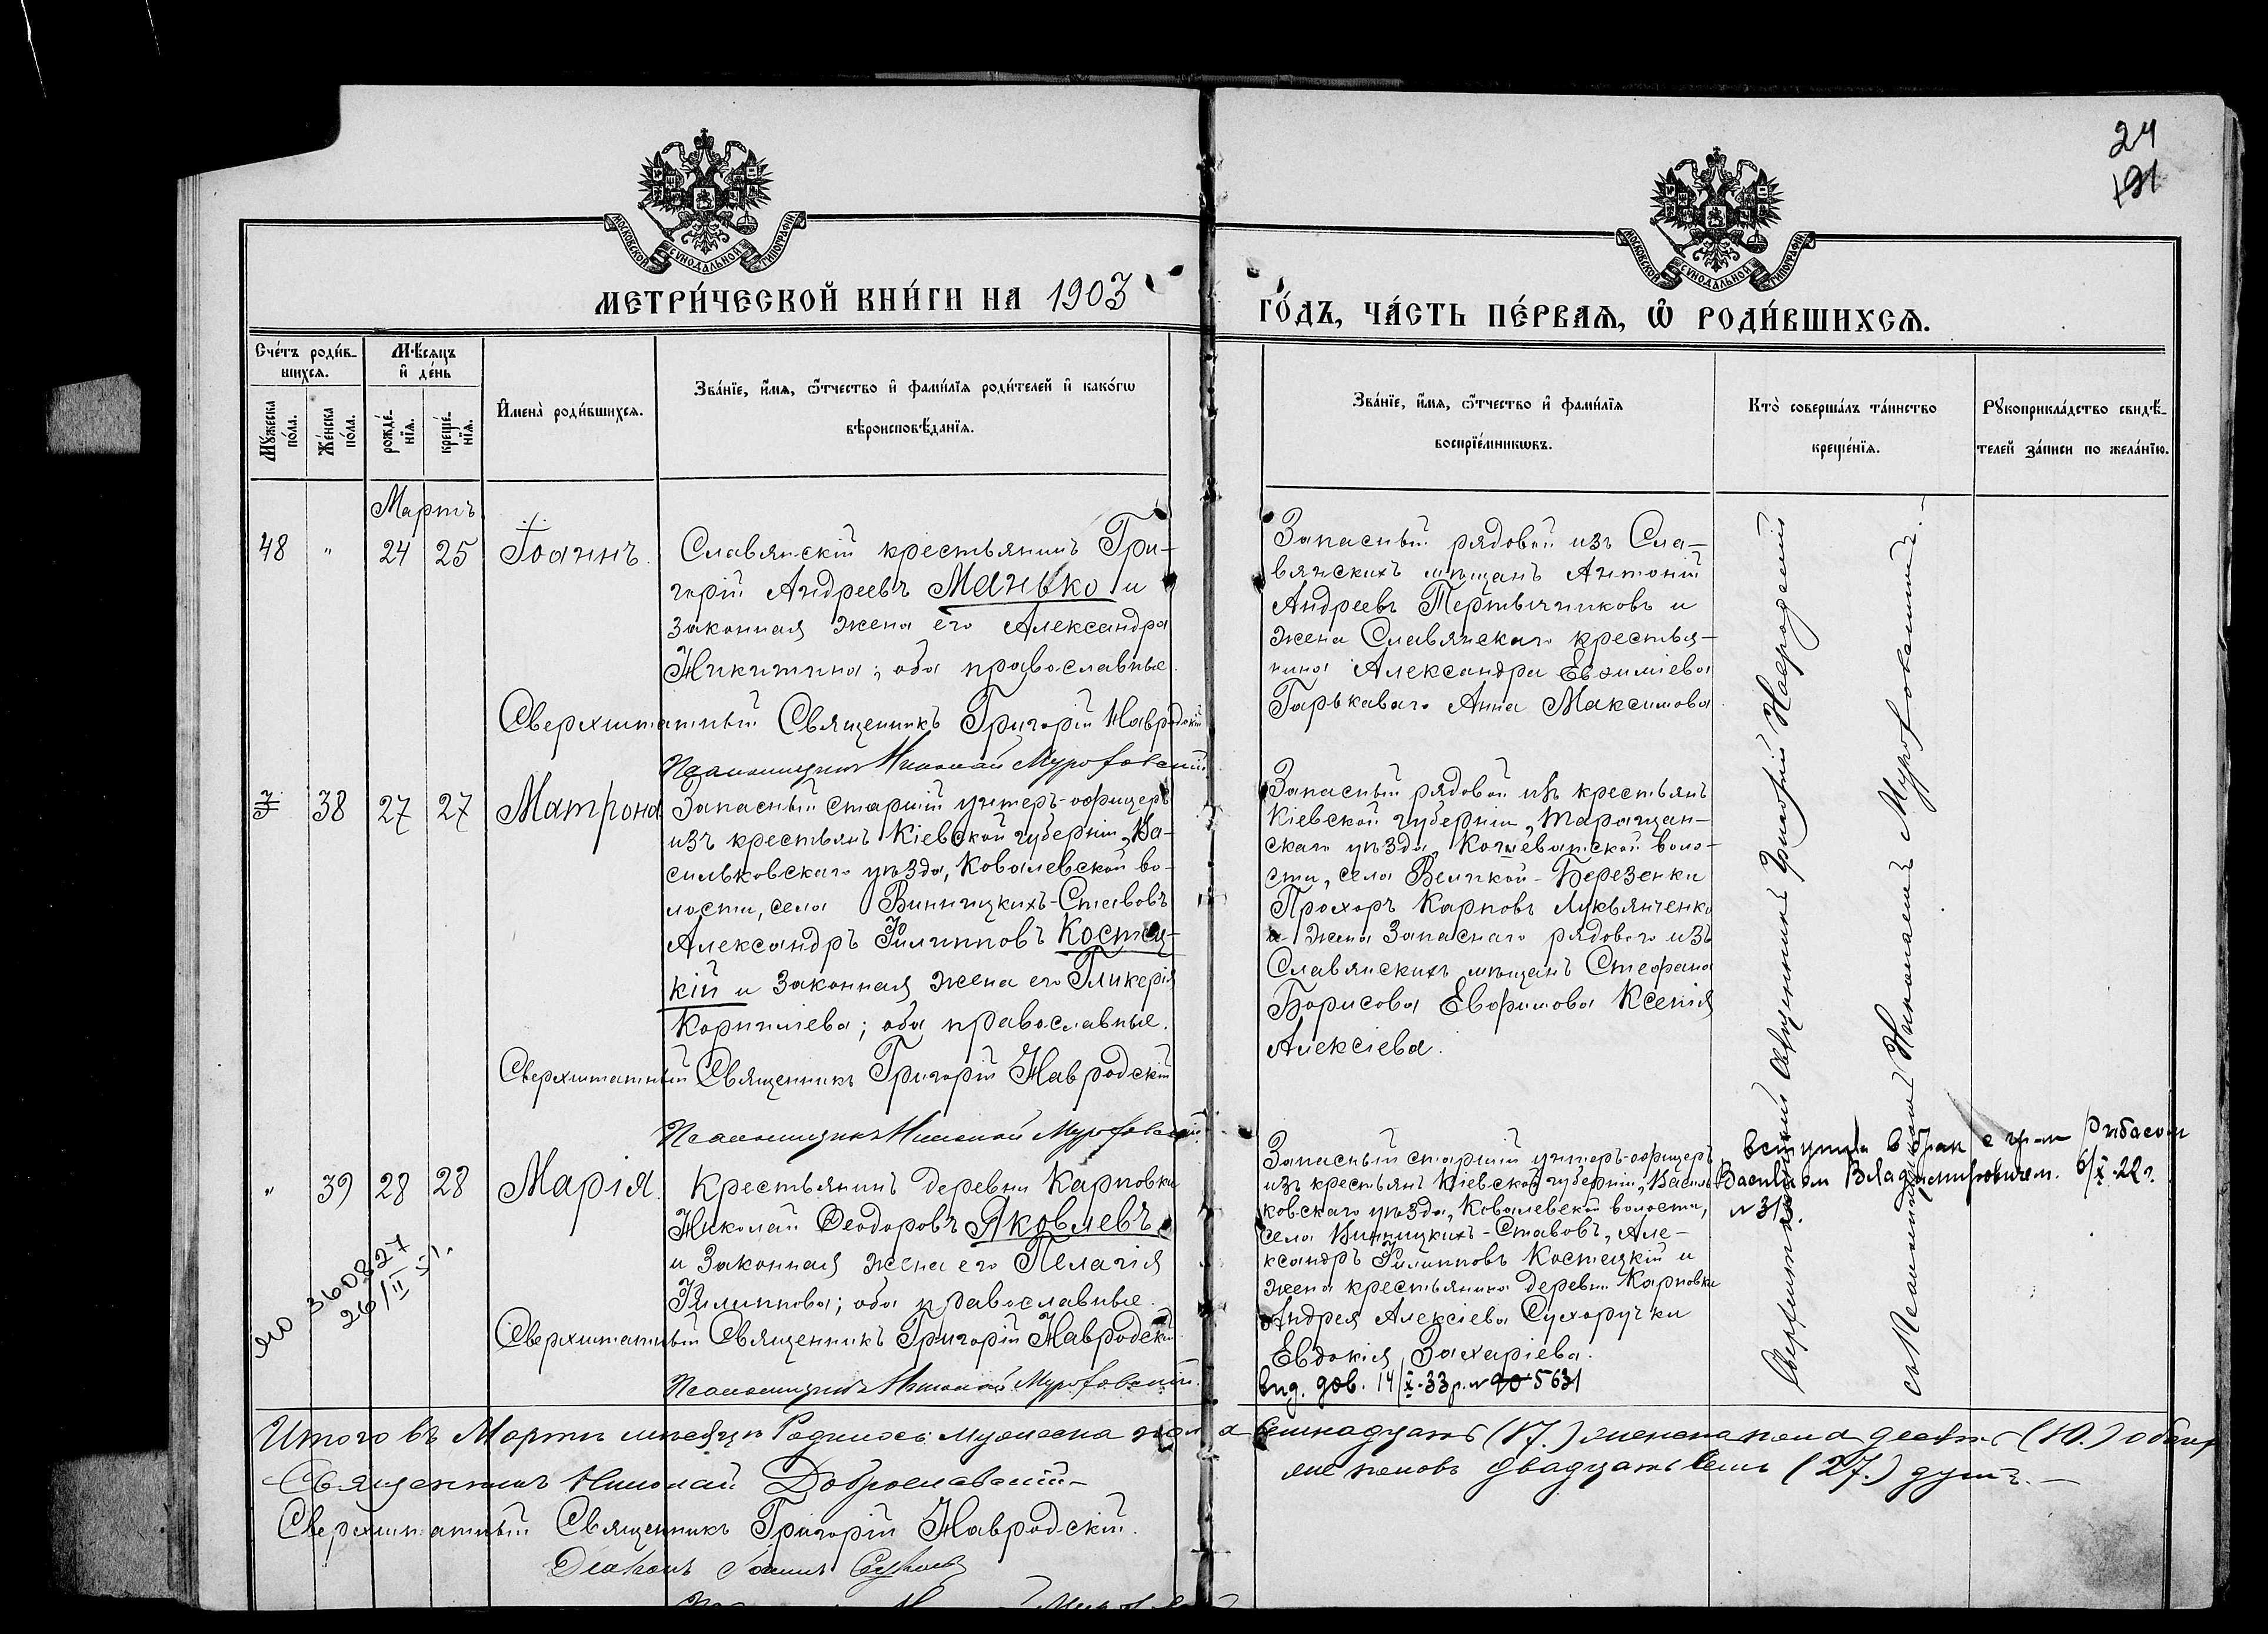 24
191
МОСКОВСКОЙ СѴНОДАЛЬНОЙ ТИПОГРАФІИ
МОСКОВСКОЙ СѴНОДАЛЬНОЙ ТИПОГРАФІИ
МЕТРИ́ЧЕСКОЙ КНИ́ГИ НА 1903
ГО́ДЪ, ЧА́СТЬ ПЕ́РВАѦ, Ѽ РОДИ́ВШИХСѦ.
Сче́тъ роди́в-
шихсѧ.
Мѣ́сѧцъ
и҆ де́нь
Мꙋ́жеска по́ла.
Же́нска по́ла.
рожде́-
нїѧ.
креще́-
нїѧ.
И҆мена̀ роди́вшихсѧ.
Зва́нїе, и҆́мѧ, ѻ҆́тчество и҆ фами́лїѧ роди́телей и҆ како́гѡ
вѣроисповѣ́данїѧ.
Зва́нїе, и҆́мѧ, ѻ҆́тчество и҆ фами́лїѧ
воспрїе́мникѡвъ.
Кто̀ соверша́лъ та́инство
креще́нїѧ.
Рꙋкоприкла́дство свидѣ́-
телей за́писи по жела́нїю.
Мартъ
48 " 24 25 Іоаннъ.
Славянскій крестьянинъ Гри-
горій Андреевъ Манько и
законная жена его Александра
Никитина; оба православные.
Сверхштатный Священникъ Григорій Навродскій
Псаломщикъ Николай Муровскій
Запасный рядовой изъ Сла-
вянскихъ мѣщанъ Антоній
Андреевъ Пертычниковъ и
жена Славянскаго крестья-
нина Александра Евѳиміева
Горькаваго Анна Максимова.
38 27 27 Матрона
Запасный старшій унтеръ-офицеръ
изъ крестьянъ Кіевской губерніи, Ва-
сильковскаго уѣзда, Ковалевской во-
лости, села Винницкихъ-Ставовъ
Александръ Филипповъ Костец-
кій и законная жена его Гликерія
Корнилева; оба православные.
Сверхштатный Священникъ Григорій Навродскій
Псаломщикъ Николай Муровскій
Запасный рядовой изъ крестьянъ
Кіевской губерніи, Таращан-
скаго уѣзда, Кошеватской воло-
сти, села Великой-Березенки
Прохоръ Карповъ Лукьянченко
и жена запаснаго рядового изъ
Славянскихъ мѣщанъ Стефана
Борисова Евфимова Ксенія
Алексіева.
" 39 28 28 Марія.
Крестьянинъ деревни Карповки
Николай Ѳеодоровъ Яковлевъ
и законная жена его Пелагія
Филиппова; оба православные.
Сверхштатный Священникъ Григорій Навродскій
Псаломщикъ Николай Муровскій
360827
26/II 51.
Запасный старшій унтеръ-офицеръ
изъ крестьянъ Кіевской губерніи, Василь-
ковскаго уѣзда, Ковалевской волости,
села Винницкихъ-Ставовъ, Але-
ксандръ Филипповъ Костецкій и
жена крестьянина деревни Карповки
Андрея Алексіева Сухоручки
Евдокія Захаріева.
вид. дов. 14/X-33р. № 5631
Сверхштатный Священникъ Григорій Навродскій
съ Псаломщикомъ Николаемъ Муровскимъ.-
вступила в брак с гр-м Рибасом
Василием Владимировичем. 6/X-22 г.
№ 313.
Итого въ Мартѣ мѣсяцѣ Родилось: мужеска пола семнадцать (17.) женска пола десять (10.) обоихъ
Священникъ Николай Доброславскій-
же половъ двадцать семь (27.) душъ.-
Сверхштатный Священникъ Григорій Навродскій.
Діаконъ Іоаннъ